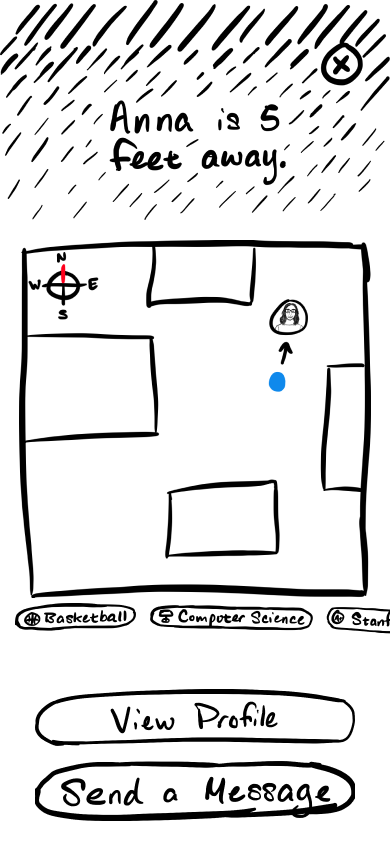 Anna is 5
feet away.
N
W E
S
Basketball
Computer Science
Stanf
View Profile
Send a Message